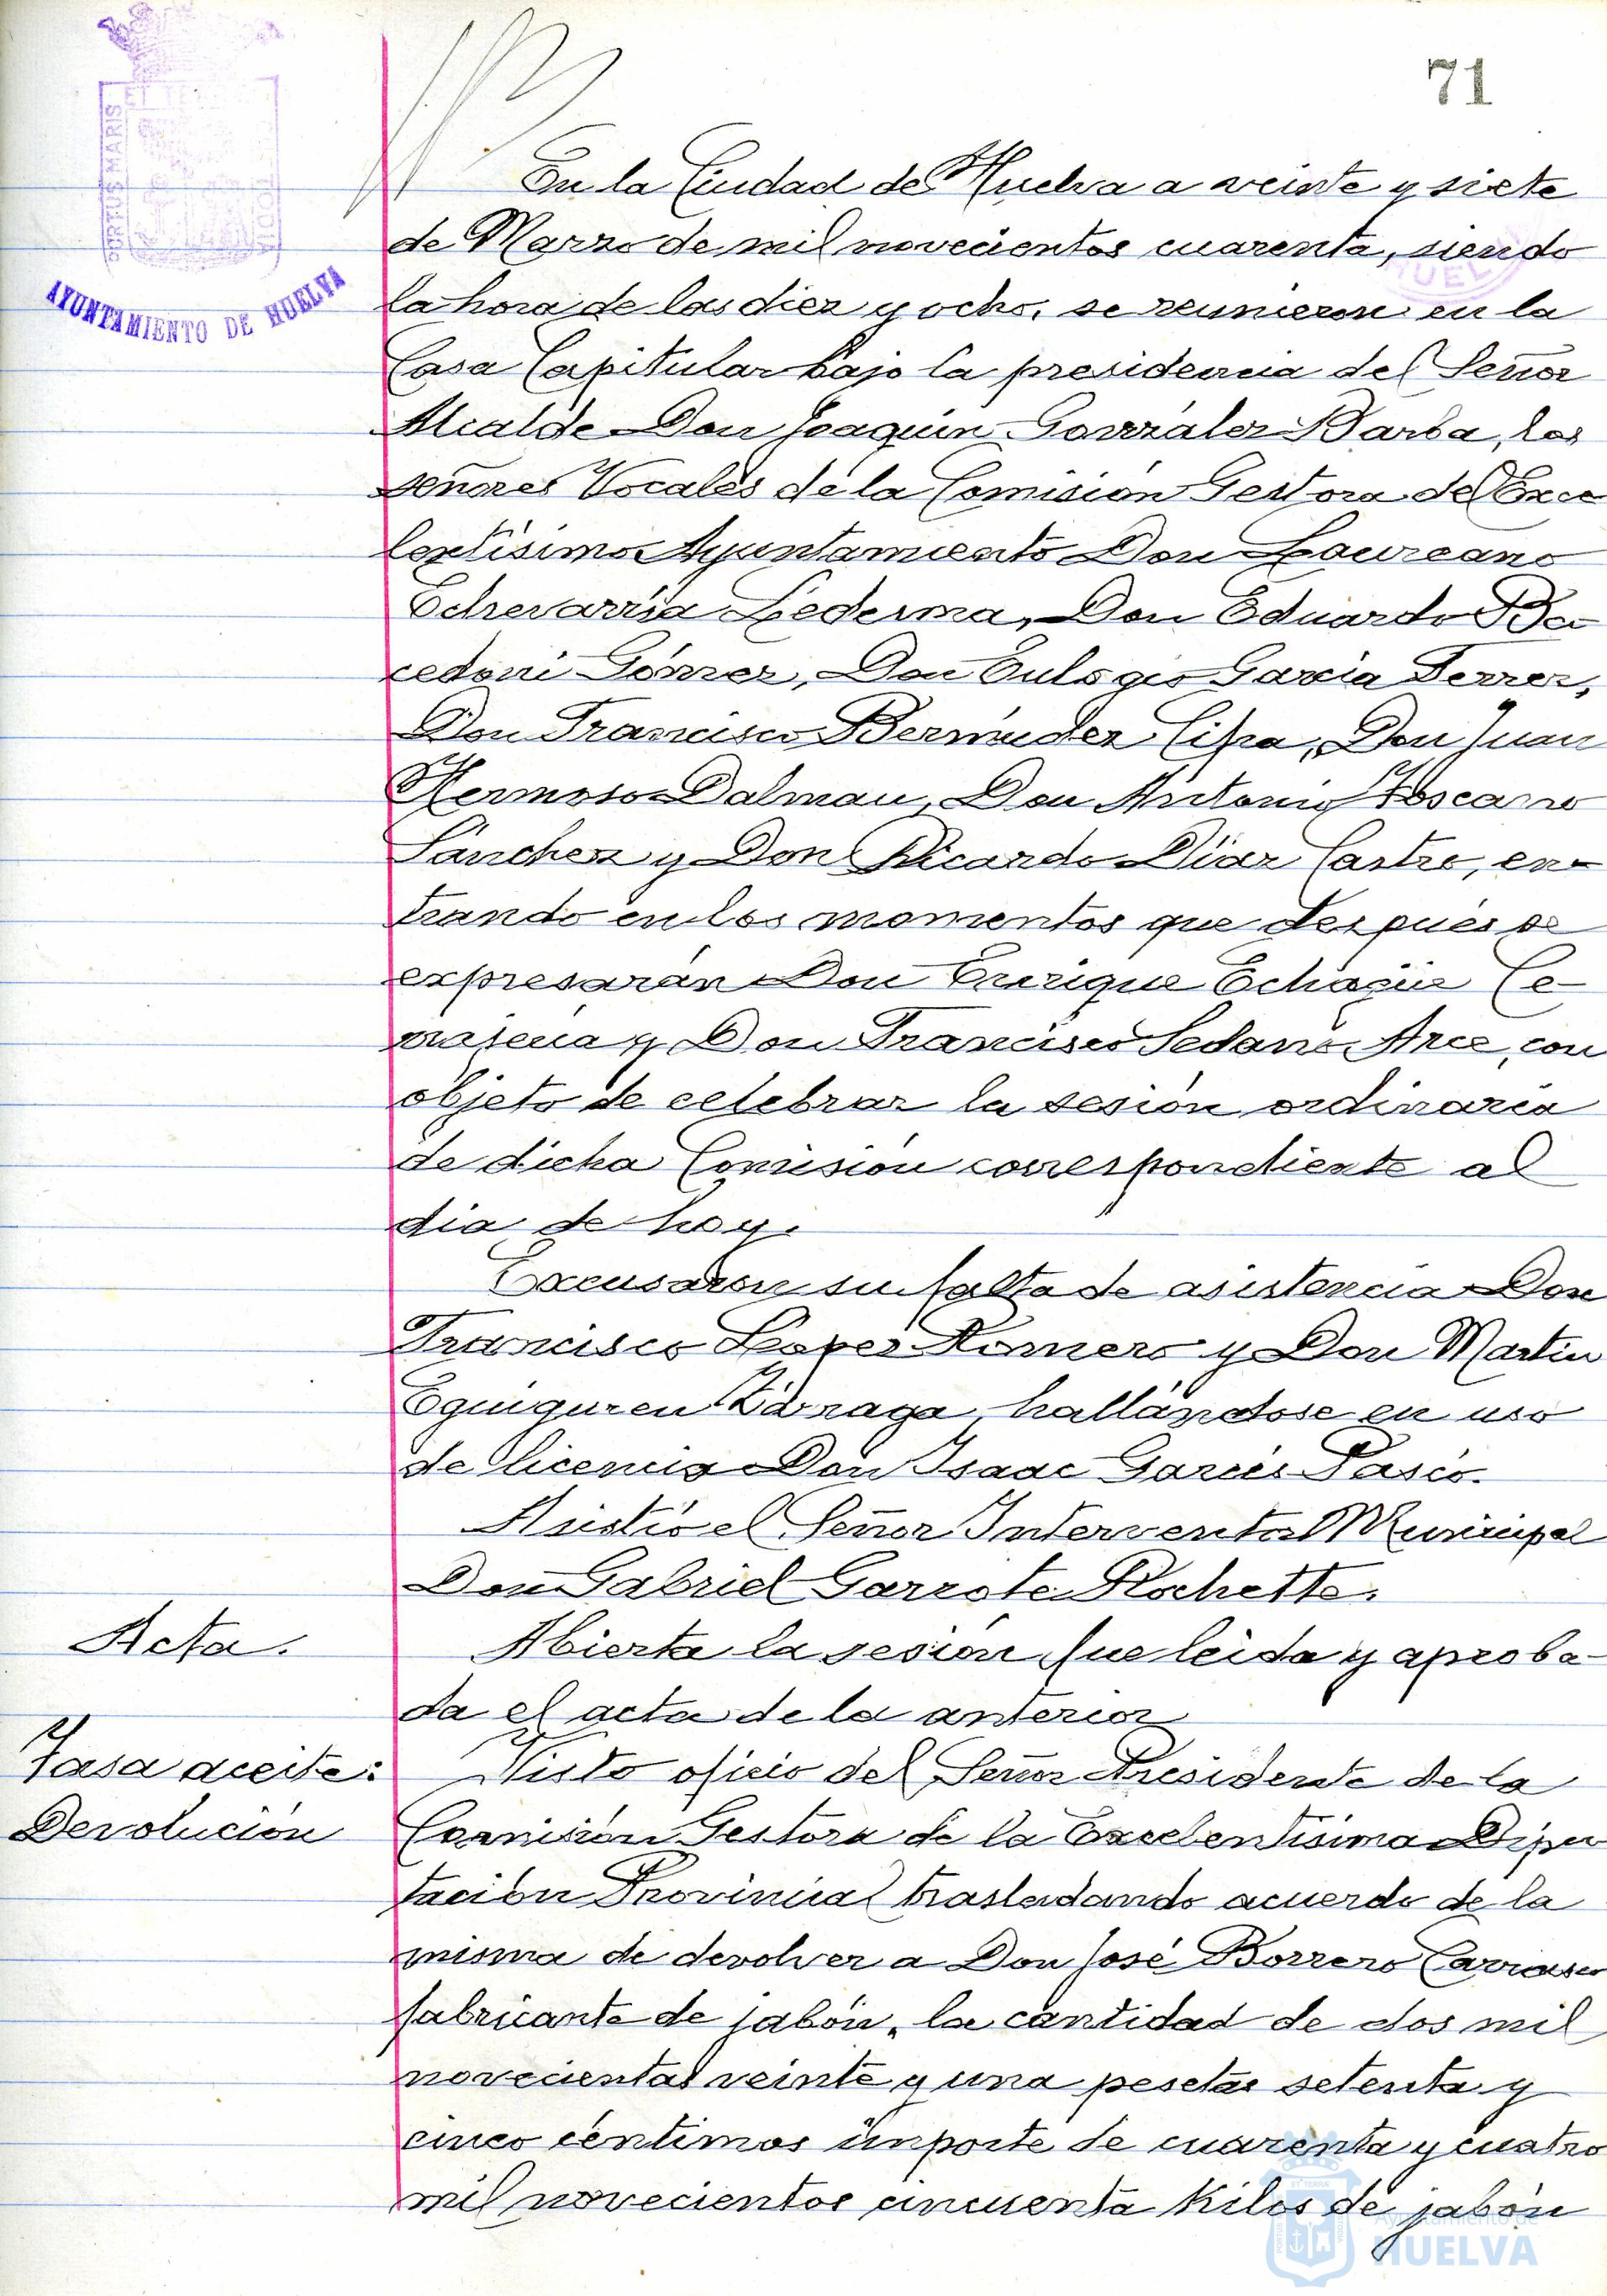 71
PORTUS MARIS
ET TERRE
AYUNTAMIENTO DE HUELVA
En la Ciudad de Huelva a veinte y siete
de Marzo de mil novecientos cuarenta, siendo
la hora de las diez y ocho, se reunieron en la
Casa Capitular bajo la presidencia del Señor
Alcalde Don Joaquin González Barba, los
señores Vocales de la Comisión Gestora del Exce
lentísimo Ayuntamiento Don Laureano
Echevarría Ledesma, Don Eduardo Ba
cedoni Gómez, Don Eulogio García Ferrer,
Don Francisco Bermúdez Cipa, Don Juan
Hermoso Dalmau, Don Antonio Toscano
Sánchez y Don Ricardo Díaz Castro, en-
trando en los momentos que después se
expresarán Don Enrique Echagüe Ce-
y Don Francisco Sedano Arce, con
objeto de celebrar la sesión ordinaria
de dicha Comisión correspondiente al
dia de hoy.
Excusaron su falta de asistencia Don
Francisco López Romero y Don Martin
Eguiguren Zárraga, hallándose en uso
de licencia Don Isaac García
Asistió el Señor Interventor Municipal
Don Gabriel Garrote Rochette.
Acta.
Abierta la sesión fue leida y aproba-
da el acta de la anterior
Tasa aceite:
Devolución
Visto oficio del Señor Presidente de la
Comisión Gestora de la Excelentísima Dipu
tación Provincial trasladando acuerdo de la
misma de devolver a Don José Borrero Carrasco
fabricante de jabón, la cantidad de dos mil
novecientas veinte y una pesetas setenta y
cinco céntimos importe de cuarenta y cuatro
mil novecientos cincuenta Kilos de jabón
Ayuntamiento de
HUELVA